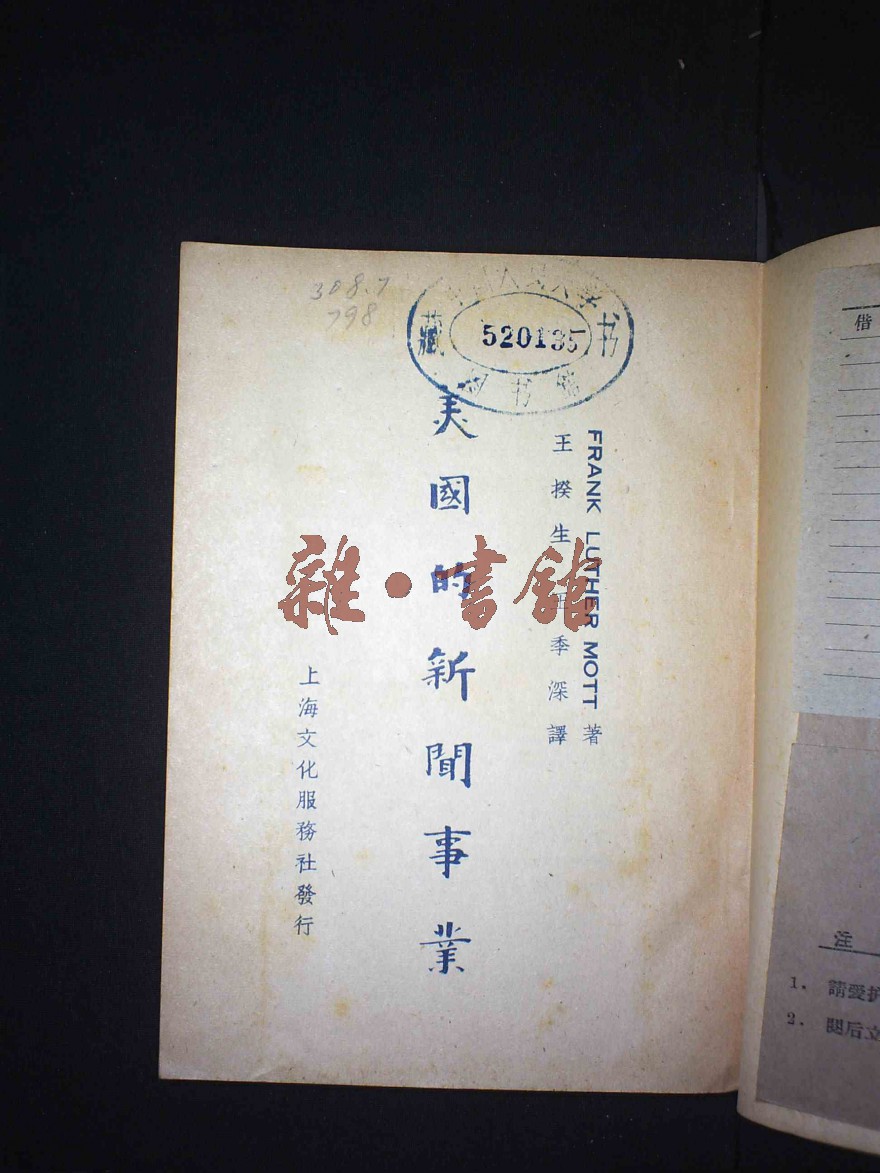 308.7
798
藏 书
520135
图书馆
FRANK LUTHER MOTT 著
王揆生 王季深 譯
美國的新聞事業
上海文化服務社發行
雜·書館
借
注
1. 請愛护
2. 閱后立